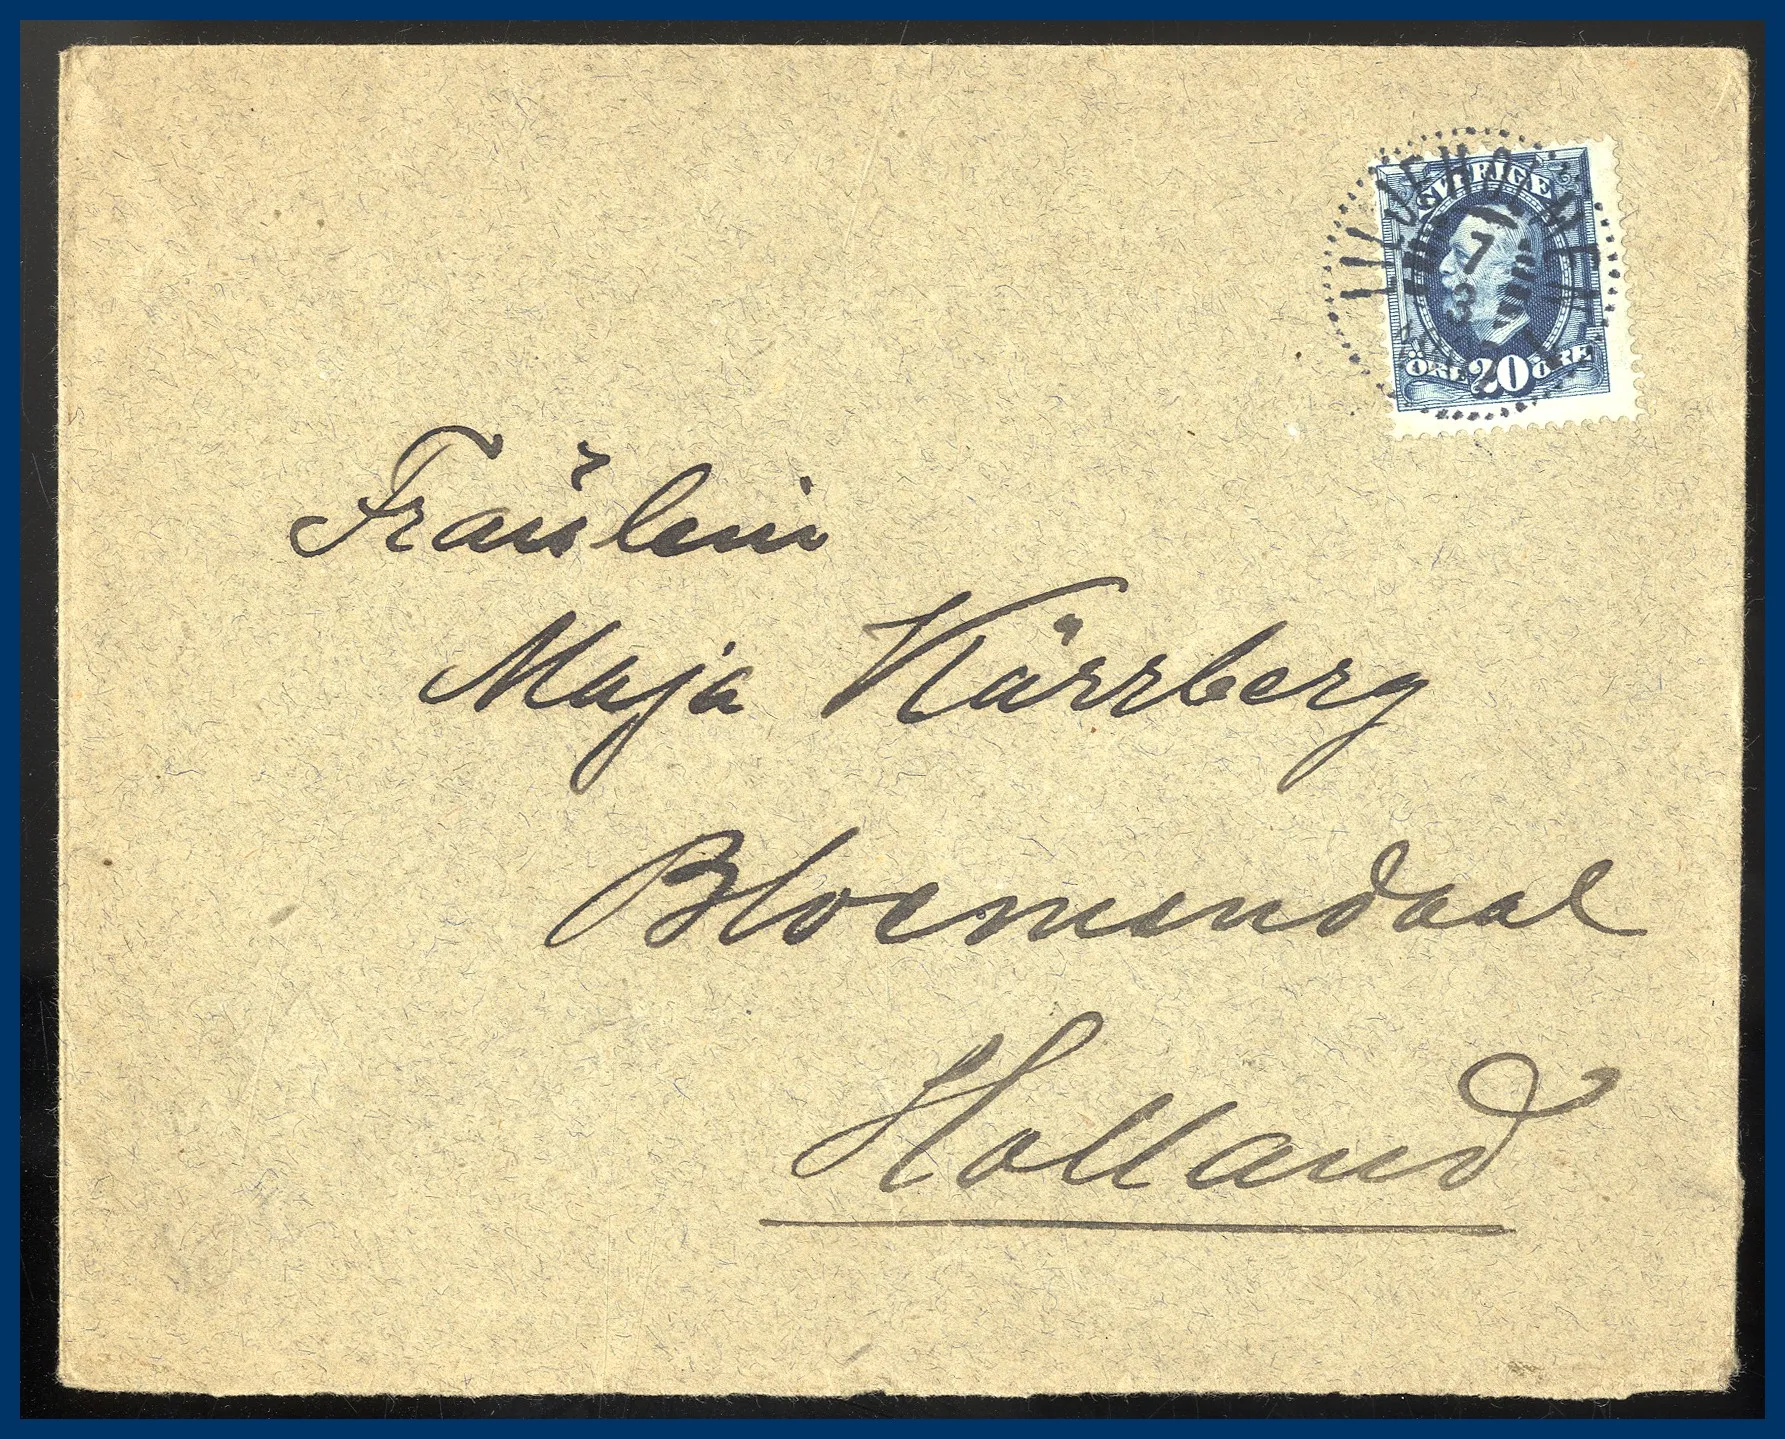 LILJEHOLMEN
SVERIGE
7
3
ÖRE 20 ÖRE
Fräulein
Maja Kärrberg
Bloemendaal
Holland